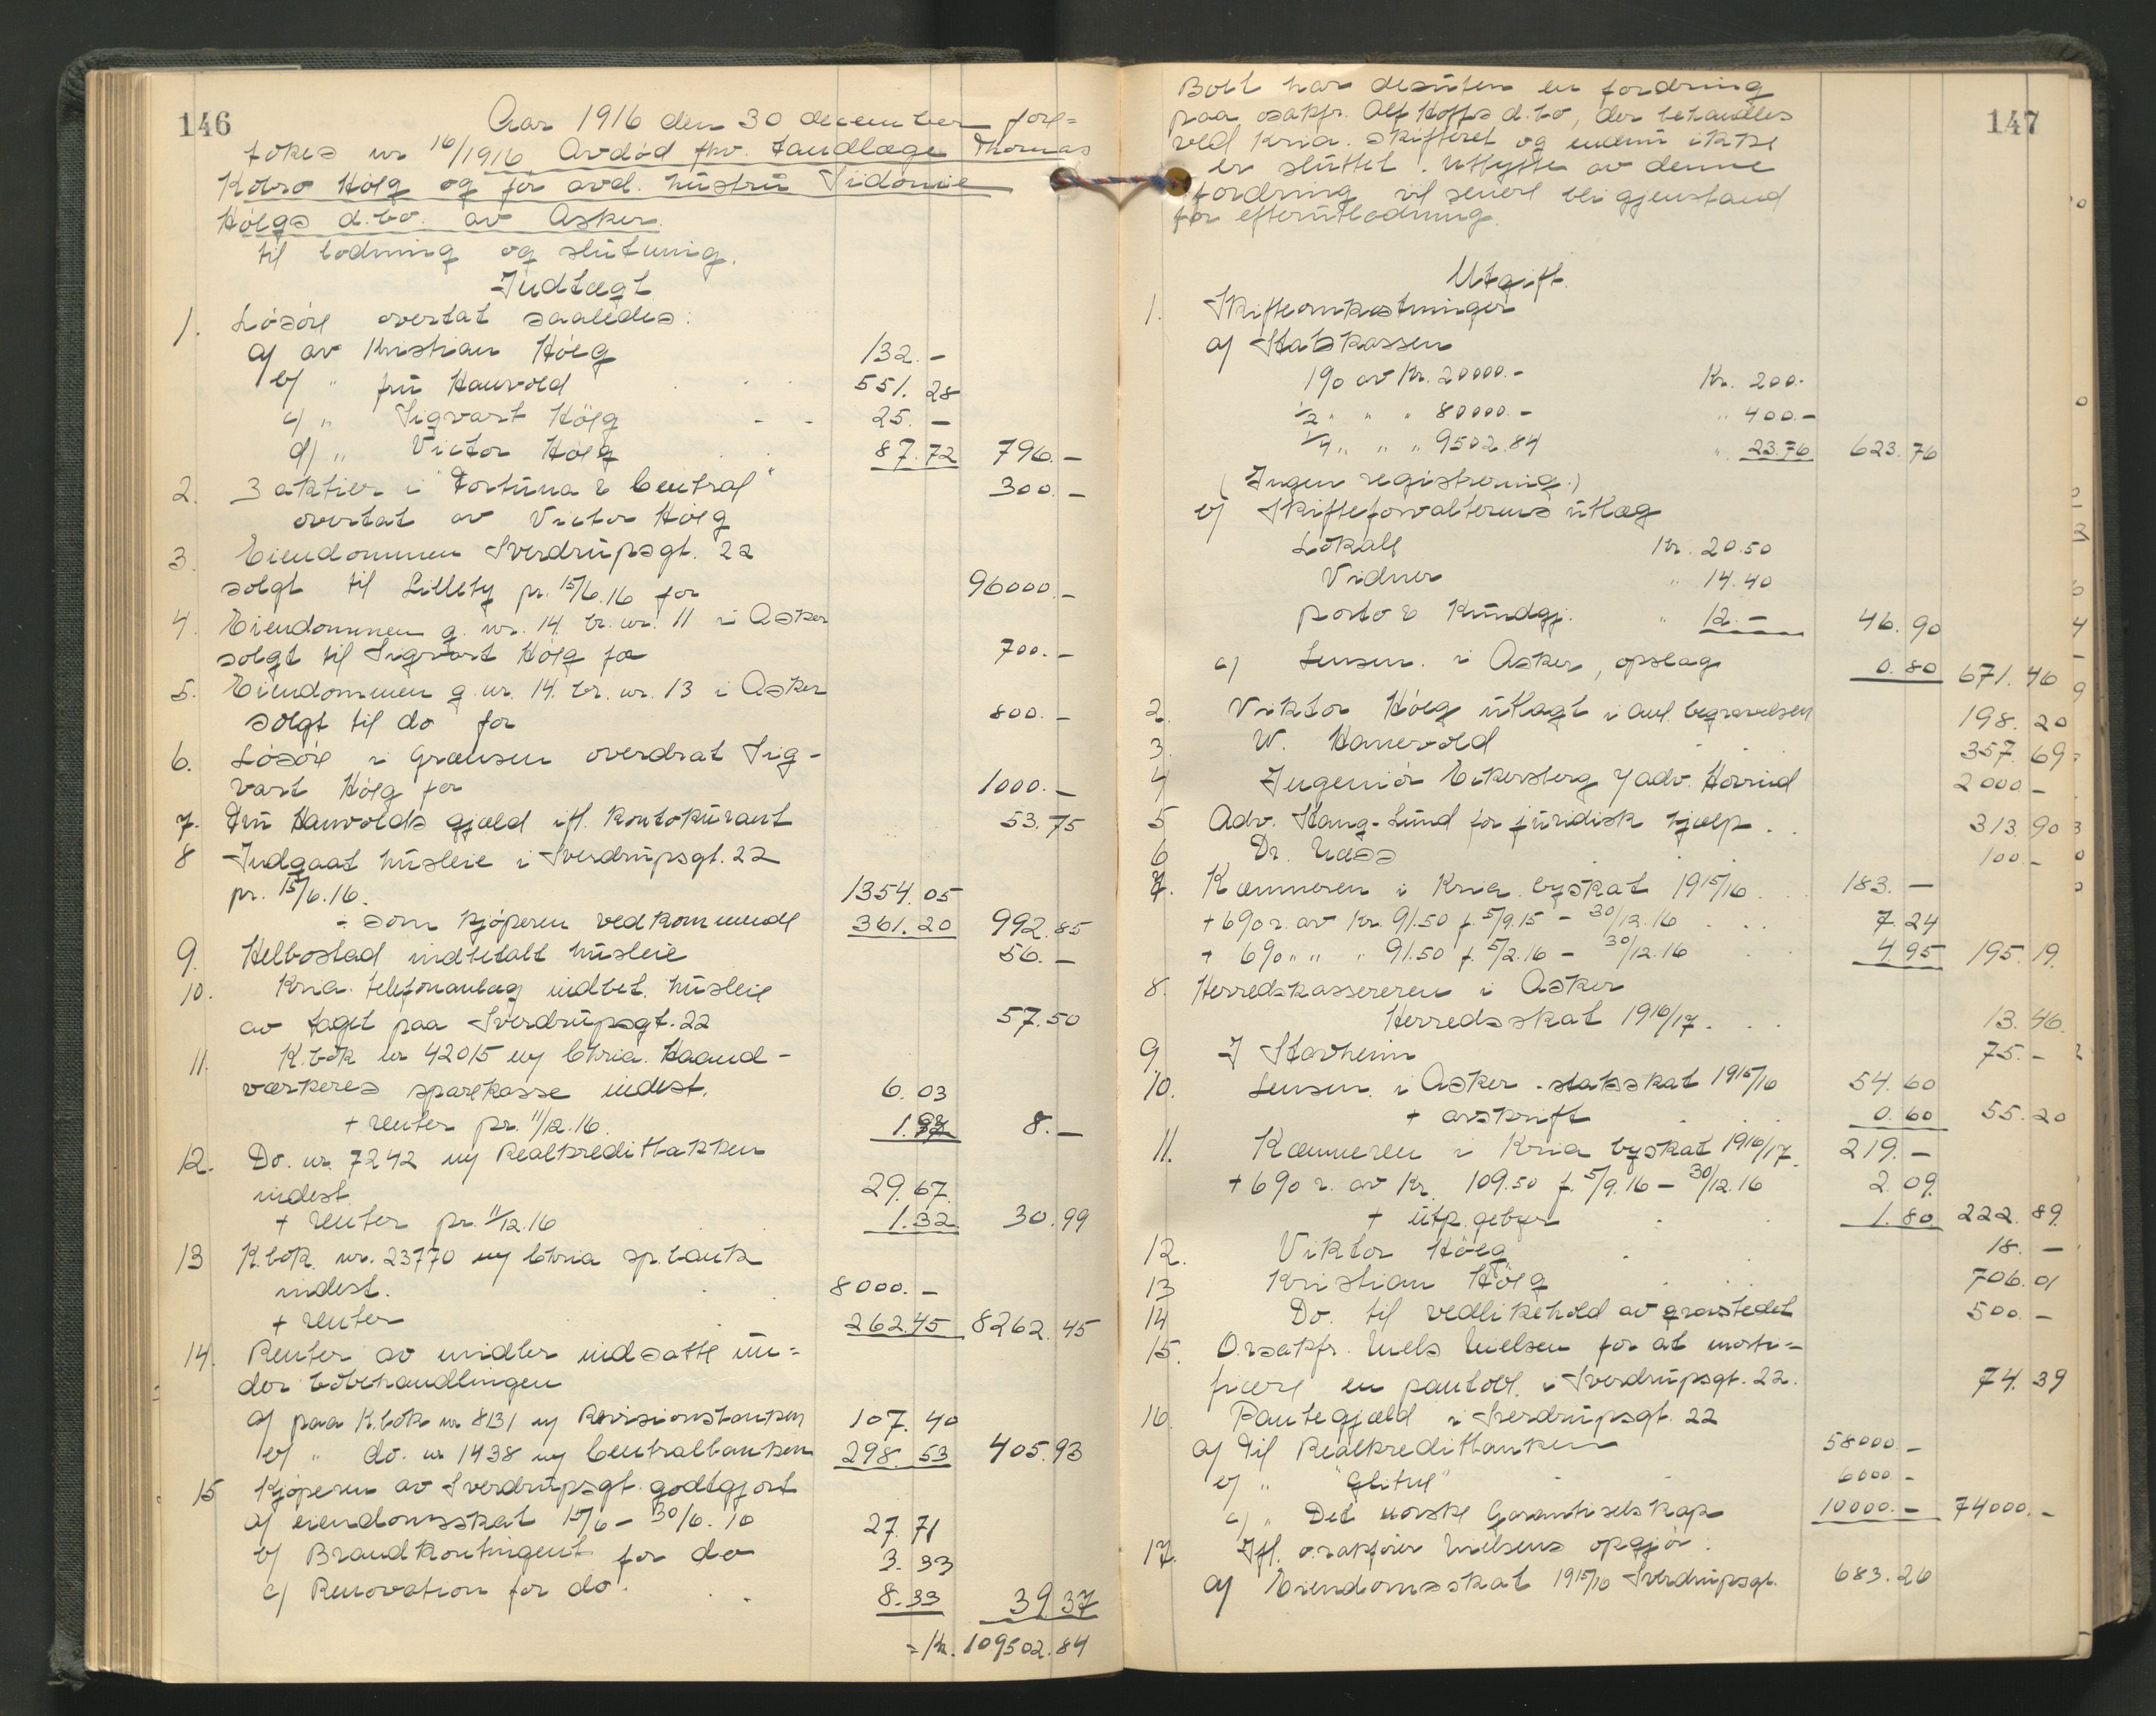 146
Aar 1916 den 30 december fore=
tokes nr 16/1916 Avdød fhv. Tandlæge Thomas
Høeg og før avd. hustru Sidonie
Høegs d.bo. av Asker.
til lodning og slutning.
Indtægt
1. Løsøre overtat saaledes:
a) av Kristian Høeg 132.–
b) " fru Hauvold 551.28
c) " Sigvart Höeg 25.–
d) " Victor Høeg 87.72 796.–
2. 3 aktier i "Fortuna & Central"
overtat av Victor Höeg 300.–
3. Eiendommen Sverdrupsgt. 22
solgt til Lilleby pr. 15/6.16 for 96000.–
4. Eiendommen g. nr. 14. br. nr. 11 i Asker
solgt til Sigvart Høeg for 700.–
5. Eiendommen g. nr. 14. br. nr. 13 i Asker
solgt til do for 800.–
6. Løsøre i Grænsen overdrat Sig-
vart Høeg for 1000.–
7. Fru Hauvolds gjæld ifl. kontokurant 53.75
8 Indgaat husleie i Sverdrupsgt. 22
pr. 15/6.16. 1354.05
÷ som kjøperen vedkommende 361.20 992.85
9. Helbostad indbetalt husleie 56.–
10. Kria. telefonanlæg indbet. husleie
av taget paa Sverdrupsgt. 22 57.50
11. K.bok nr 42015 m/ Chria. Haand-
værkeres sparekasse indest. 6.03
+ renter pr. 11/12.16. 1.97 8.–
12. Do. nr. 7242 m/ Realkreditbakken
indest. 29.67.
+ renter pr. 11/12.16 1.32. 30.99
13 K.bok. nr. 23770 m/ Chria sp.bank
indest. 8000.–
+ renter 262.45 8262.45
14. Renter av midler indsatte un=
der bobehandlingen
a) paa K.bok nr 8131 m/ Revisionsbanken 107.40
b) " do. nr 1438 m/ Centralbanken 298.53 405.93
15 Kjøperen av Sverdrupsgt. godtgjort
a) eiendomsskat 15/6 – 30/6. 16 27.71
b) Brandkontingent for do 3.33
c) Renovation for do. 8.33 39.37
= Kr. 109502.84
147
Boet har desuten en fordring
paa osakfr. Alf Hoffs d.bo, der behandles
ved Kria. skifteret og endnu ikke
er sluttet. Utbytte av denne
fordring vil senere bli gjenstand
for efterutlodning.
Utgift.
1. Skifteomkostninger
a) Statskassen
1% av Kr. 20000.– Kr. 200.-
1/2 " " " 80000.– " 400.–
1/4 " " " 9502.84 " 23.76 623.76
(Ingen registrering.)
b) Skifteforvalterens utlæg
Lokale Kr. 20.50
Vidner " 14.40
porto & kundgj. " 12.– 46.90
c) Lensm. i Asker, opslag 0.80 671.46
2. Viktor Høeg utlagt i anl. begravelsen 198.20
3. W. Hauvold 357.69
4 Ingeniör Eckersberg v/ adv. Horrind 2000.–
5 Adv. Stang-Lund for juridisk hjælp. 313.90
6 Dr. Næss 100.–
7. Kæmneren i Kria byskat 1915/16 183.–
+ 6% r. av Kr. 91.50 f. 5/9.15 – 30/12.16 7.24
+ 6% " " " 91.50 f. 5/2.16 – 30/12.16 4.95 195.19.
8. Herredskassereren i Asker
Herredsskat 1916/17. 13.46.
9 J Stavheim 75.–
10. Lensm. i Asker. statsskat 1915/16 54.60
+ avskrift 0.60 55.20
11. Kæmneren i Kria byskat 1916/17. 219.–
+ 6% r. av Kr. 109.50 f. 5/9.16 – 30/12.16 2.09.
+ utp. gebyr 1.80 222.89.
12. Viktor Höeg 18.–
13 Kristian Höeg 706.01
14 Do. til vedlikehold av gravstedet 500.–
15. O.rsakfr. Niels Nielsen for at morti=
ficere en pantobl. i Sverdrupsgt. 22. 74.39
16. Pantegjæld i Sverdrupsgt. 22
a) Til Realkreditbanken 58000.–
b) " "Glitne" 6000.–
c) " Det norske Garantiselskap 10000.– 74000.–
17. Ifl. o.rsakfører Nielsens opgjør:
a) Eiendomsskat 1915/16 Sverdrupsgt. 683.26